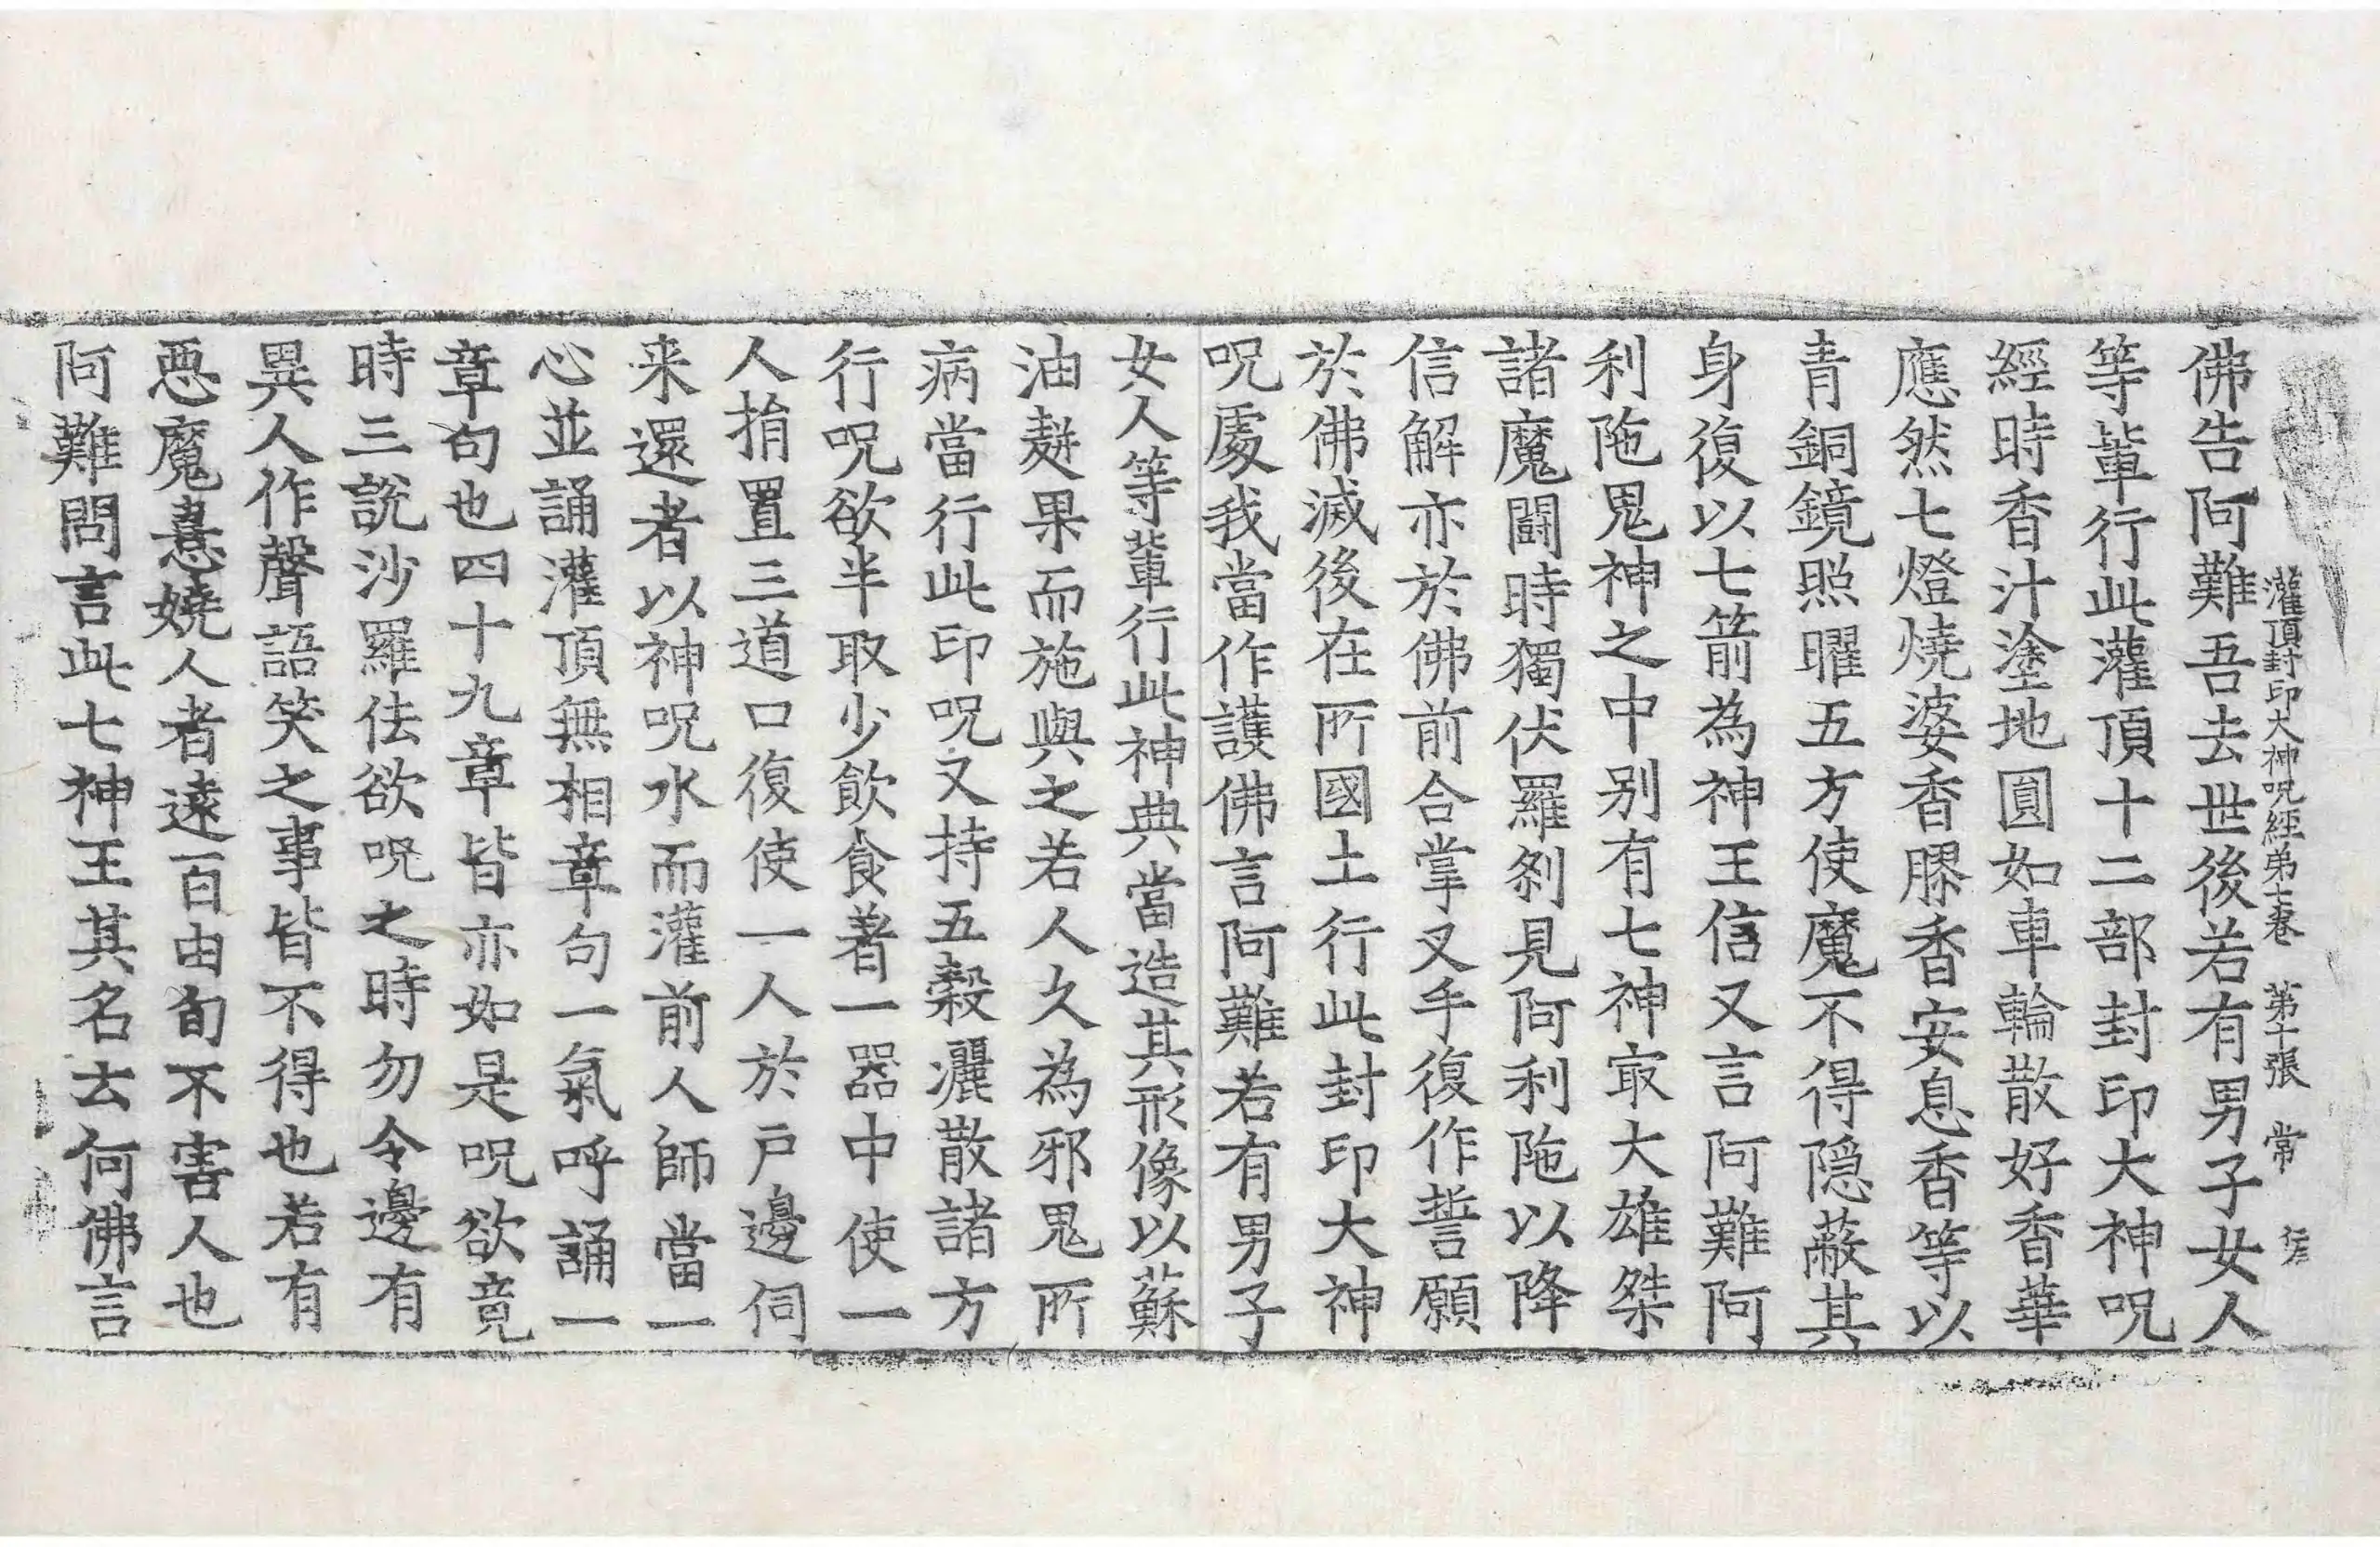 灌頂封印大神呪經弟七卷　第十張　常
佛告阿難吾去世後若有男子女人
等軰行此灌頂十二部封印大神呪
經時香汁塗地圓如車輪散好香華
應然七燈燒婆香膠香安息香等以
青銅鏡照曜五方使魔不得隱蔽其
身復以七箭為神王信又言阿難阿
利陁鬼神之中別有七神㝡大雄桀
諸魔鬪時獨伏羅刹見阿利陁以降
信解亦於佛前合掌叉手復作誓願
於佛滅後在所國土行此封印大神
呪處我當作護佛言阿難若有男子
女人等軰行此神典當造其形像以蘇
油麨果而施與之若人久為邪鬼所
病當行此印呪又持五穀灑散諸方
行呪欲半取少飲食著一器中使一
人捎置三道口復使一人於戶邊伺
来還者以神呪水而灌前人師當一
心並誦灌頂無相章句一氣呼誦一
章句也四十九章皆亦如是呪欲竟
時三說沙羅佉欲呪之時勿令邊有
異人作聲語笑之事皆不得也若有
惡魔憙嬈人者遠百由旬不害人也
阿難問言此七神王其名云何佛言